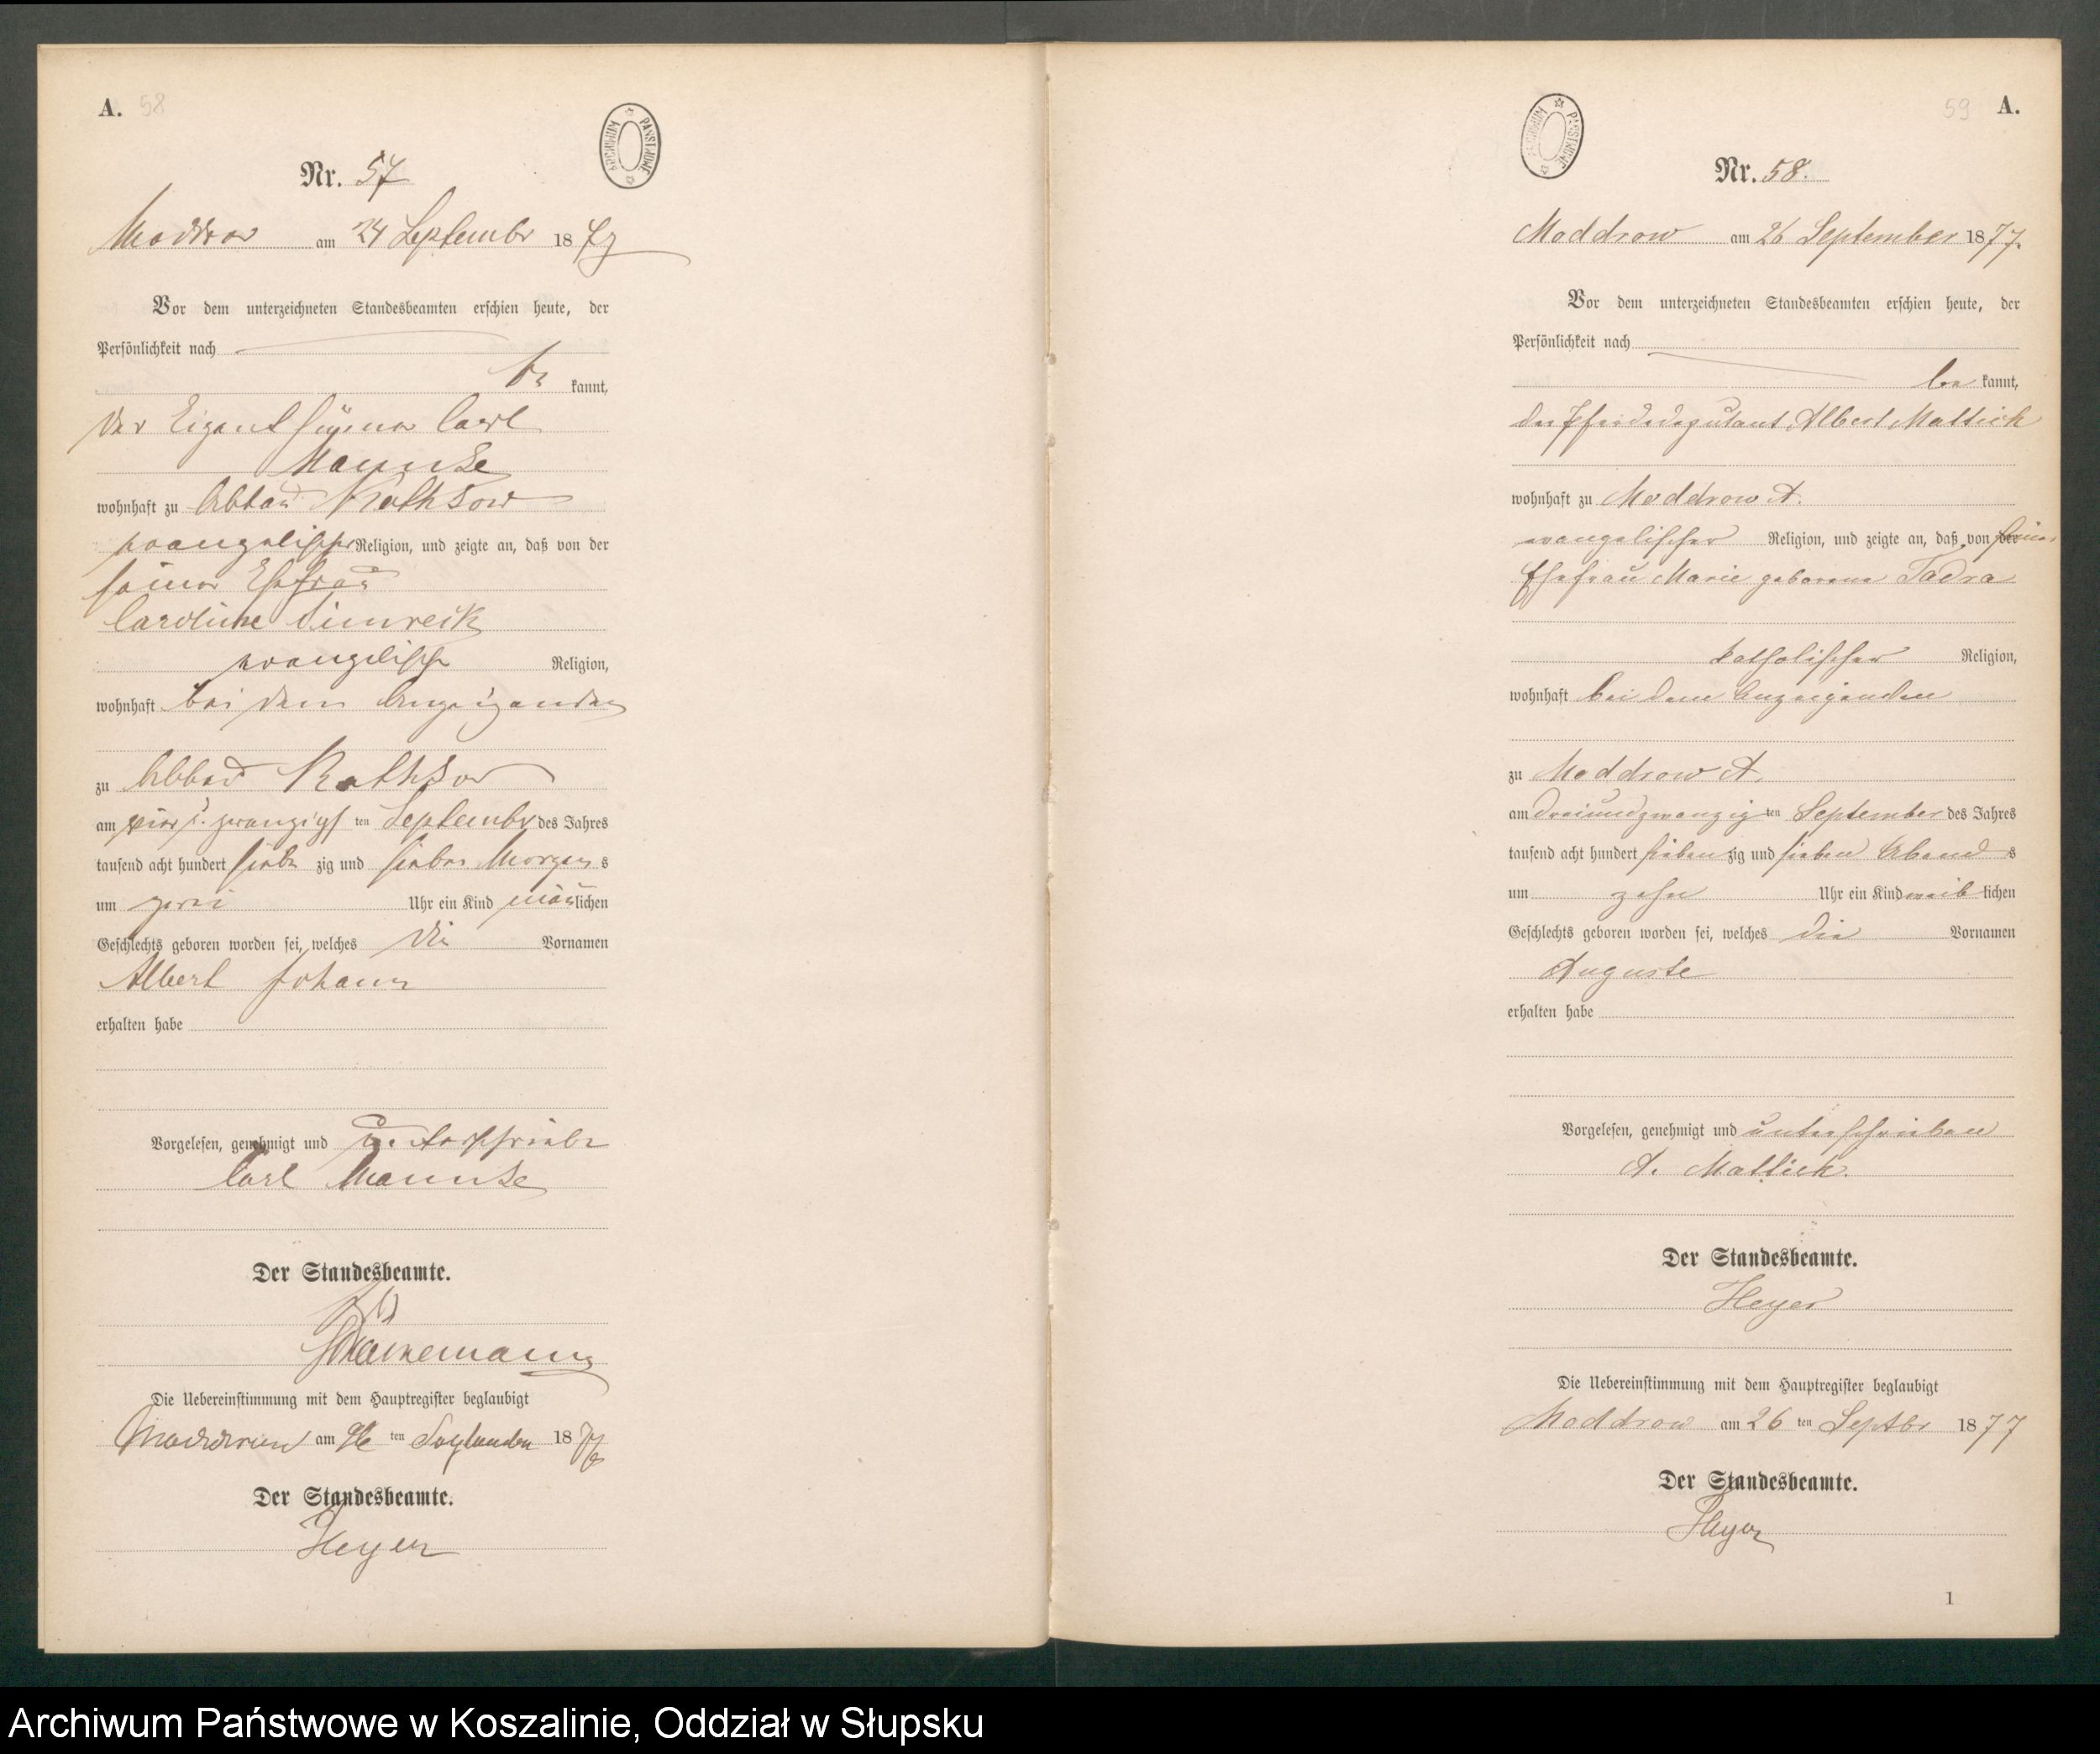 A. 58
ARCHIWUM PAŃSTWOWE
Nr. 57
Moddrow am 24 Septembr 1877
Vor dem unterzeichneten Standesbeamten erschien heute, der
Persönlichkeit nach
be kannt,
der Eigenthümer Carl
Mannke
wohnhaft zu Abbau Rathsow
evangelischer Religion, und zeigte an, daß von der
seiner Ehefrau
Caroline
evangelischer Religion,
wohnhaft bei dem Anzeigenden
zu Abbau Rathsow
am vier u. zwanzigst ten September des Jahres
tausend acht hundert sieben zig und sieben Morgens
um zwei Uhr ein Kind männlichen
Geschlechts geboren worden sei, welches die Vornamen
Albert Johann
erhalten habe
Vorgelesen, genehmigt und unterschrieben
Carl Mannke
Der Standesbeamte.
Die Uebereinstimmung mit dem Hauptregister beglaubigt
Moddrow am 26 ten September 1877
Der Standesbeamte.
Heyer
59 A.
ARCHIWUM PAŃSTWOWE
Nr. 58.
Moddrow am 26 September 1877.
Vor dem unterzeichneten Standesbeamten erschien heute, der
Persönlichkeit nach
be kannt,
der Pferdedeputant Albert Mattick
wohnhaft zu Moddrow A.
evangelischer Religion, und zeigte an, daß von der seiner
Ehefrau Marie geborene Tadra
katholischer Religion,
wohnhaft bei dem Anzeigenden
zu Moddrow A.
am dreiundzwanzig ten September des Jahres
tausend acht hundert sieben zig und sieben Abend s
um zehn Uhr ein Kind weib lichen
Geschlechts geboren worden sei, welches die Vornamen
Auguste
erhalten habe
Vorgelesen, genehmigt und unterschrieben
A. Mattick.
Der Standesbeamte.
Heyer
Die Uebereinstimmung mit dem Hauptregister beglaubigt
Moddrow am 26 ten Septbr 1877
Der Standesbeamte.
Heyer
1
Archiwum Państwowe w Koszalinie, Oddział w Słupsku